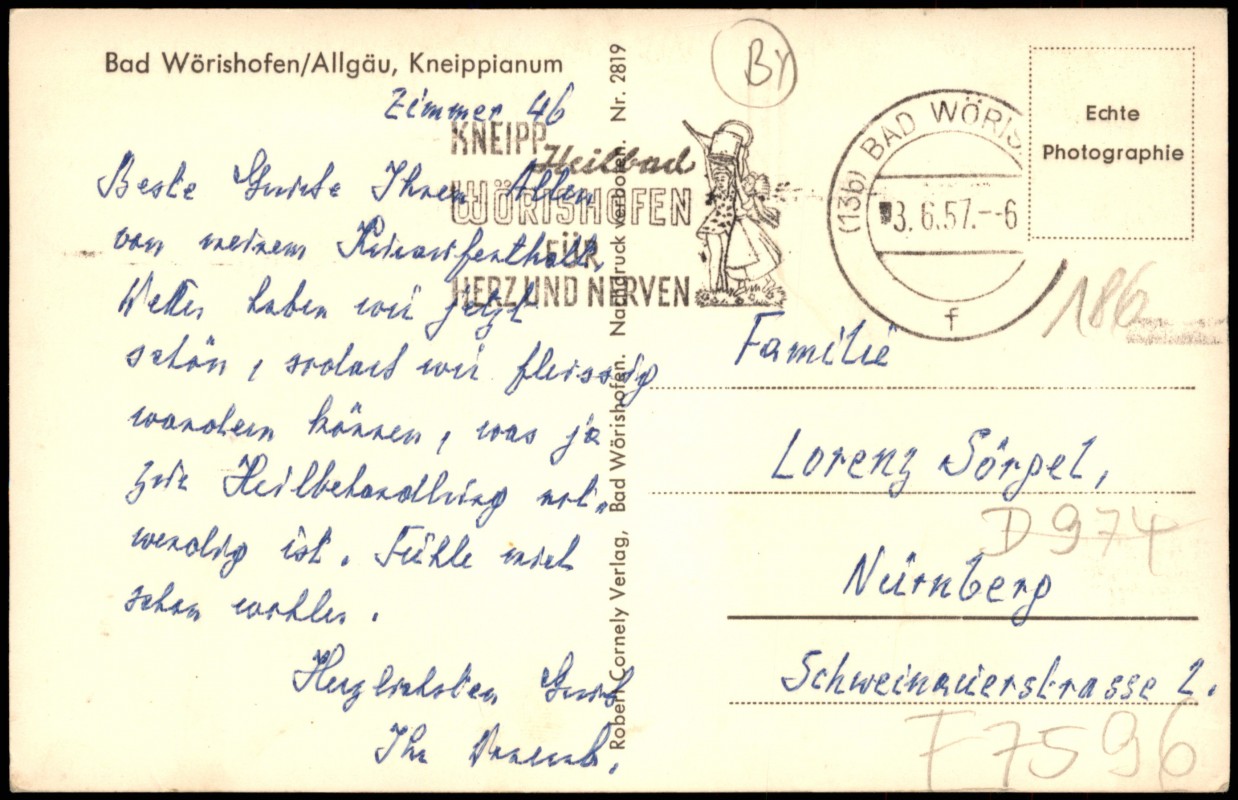 Bad Wörishofen/Allgäu, Kneippianum
Zimmer 46
Beste Grüsse Ihnen Allen
von meinem Kuraufenthalt,
Wetter haben wir jetzt
schön, sodass wir fleissig
wandern können, was ja
zur Heilbehandlung not„
wendig ist. Fühle mich
schon wohler.
Herzlichsten Gruss
Ihr
Robert Cornely Verlag, Bad Wörishofen. Nachdruck verboten. Nr. 2819
KNEIPP
Heilbad
WÖRISHOFEN
FÜR
HERZ UND NERVEN
BY
(13b) BAD WÖRIS
3.6.57.--6
f
Echte
Photographie
186
Familie
Lorenz Sörgel,
D 974
Nürnberg
Schweinauerstrasse 2.
F7596